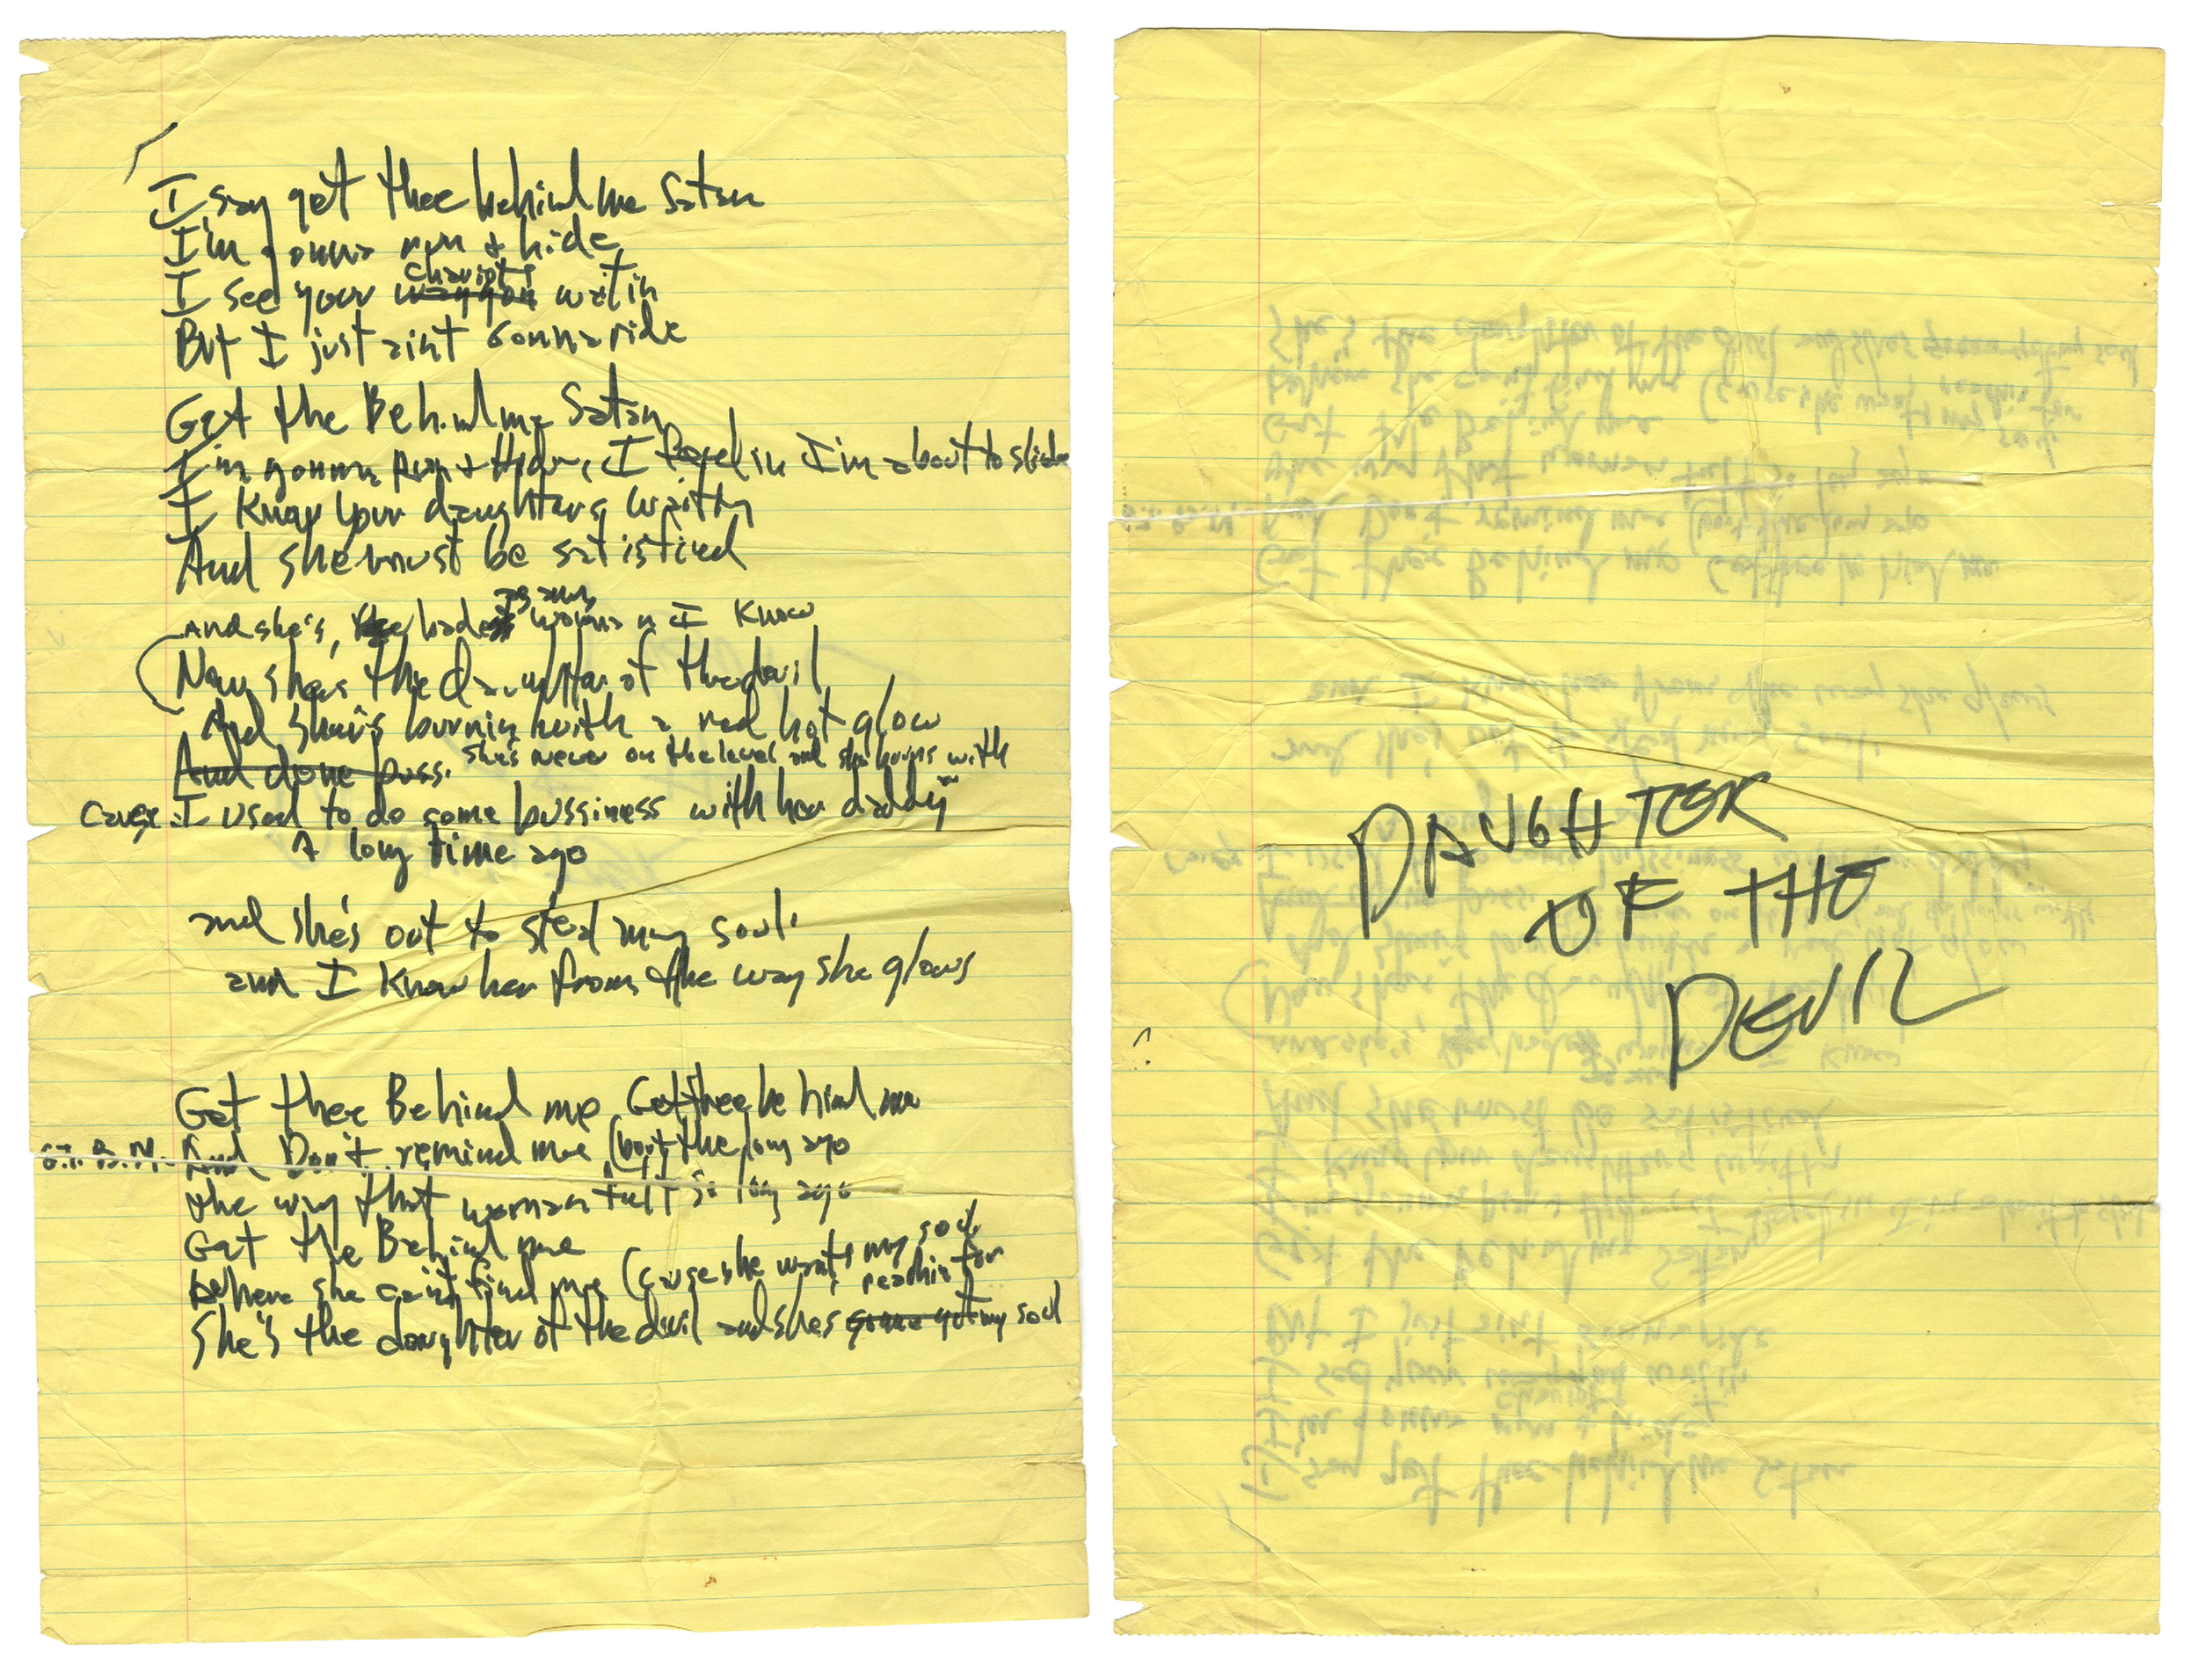 I say get thee behind me Satan
I'm gonna run & hide
chariots
I see your waggon waitin
But I just aint gonna ride
Get the Behind me Satan
I'm gonna Run + Hide, I feel in I'm about to slide
I Know your daughters waiting
And she must be satisfied
as any
And she's, the badest woman I Know
Now she's the Daughter of the devil
And She's burnin with a red hot glow
And done buss. She's never on the level and she burns with
Cause I used to do some bussiness with her daddy
A long time ago
and she's out to steal my soul.
and I Know her from the way she glows
Get thee Behind me Get thee behind me
G.T.B.M. And Don't remind me (bout the long ago
the way that woman felt so long ago
Get the Behind me
Where she cant find me (cause she wants my soul
reachin for
She's the daughter of the devil and shes gonna get my soul
DAUGHTER
OF THE
DEVIL